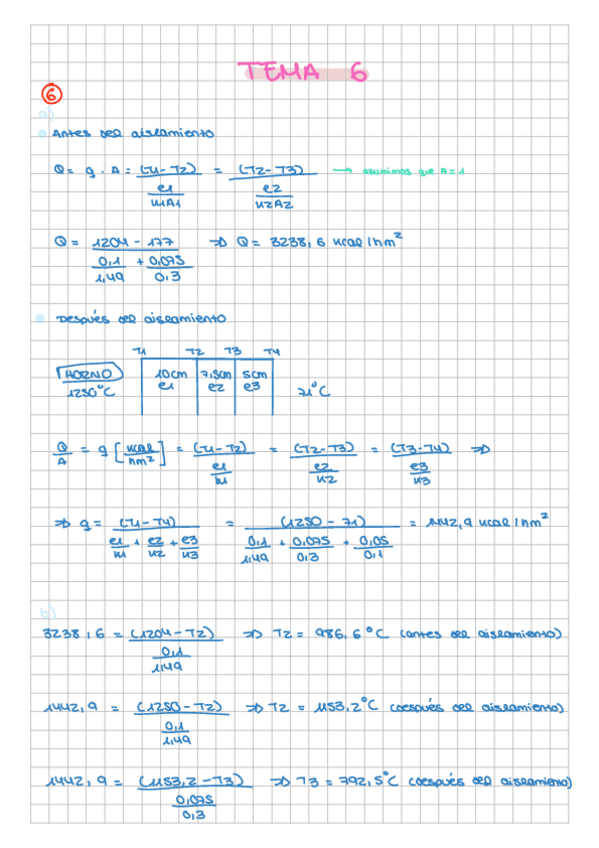 TEMA 6
6
a)
Antes del aislamiento
Q = q · A = (T1-T2) / (e1 / k1A1) = (T2-T3) / (e2 / k2A2) → asumimos que A=1
Q = (1204 - 177) / (0,1 / 1,49 + 0,075 / 0,3) ⇒ Q = 3238,6 kcal/hm²
Después del aislamiento
T1 T2 T3 T4
HORNO 10cm 7,5cm 5cm
1250°C e1 e2 e3 71°C
Q / A = q [kcal / hm²] = (T1-T2) / (e1 / k1) = (T2-T3) / (e2 / k2) = (T3-T4) / (e3 / k3) ⇒
⇒ q = (T1-T4) / (e1 / k1 + e2 / k2 + e3 / k3) = (1250 - 71) / (0,1 / 1,49 + 0,075 / 0,3 + 0,05 / 0,1) = 1442,9 kcal/hm²
b)
3238,6 = (1204-T2) / (0,1 / 1,49) ⇒ T2 = 986,6°C (antes del aislamiento)
1442,9 = (1250-T2) / (0,1 / 1,49) ⇒ T2 = 1153,2°C (después del aislamiento)
1442,9 = (1153,2-T3) / (0,075 / 0,3) ⇒ T3 = 792,5°C (después del aislamiento)